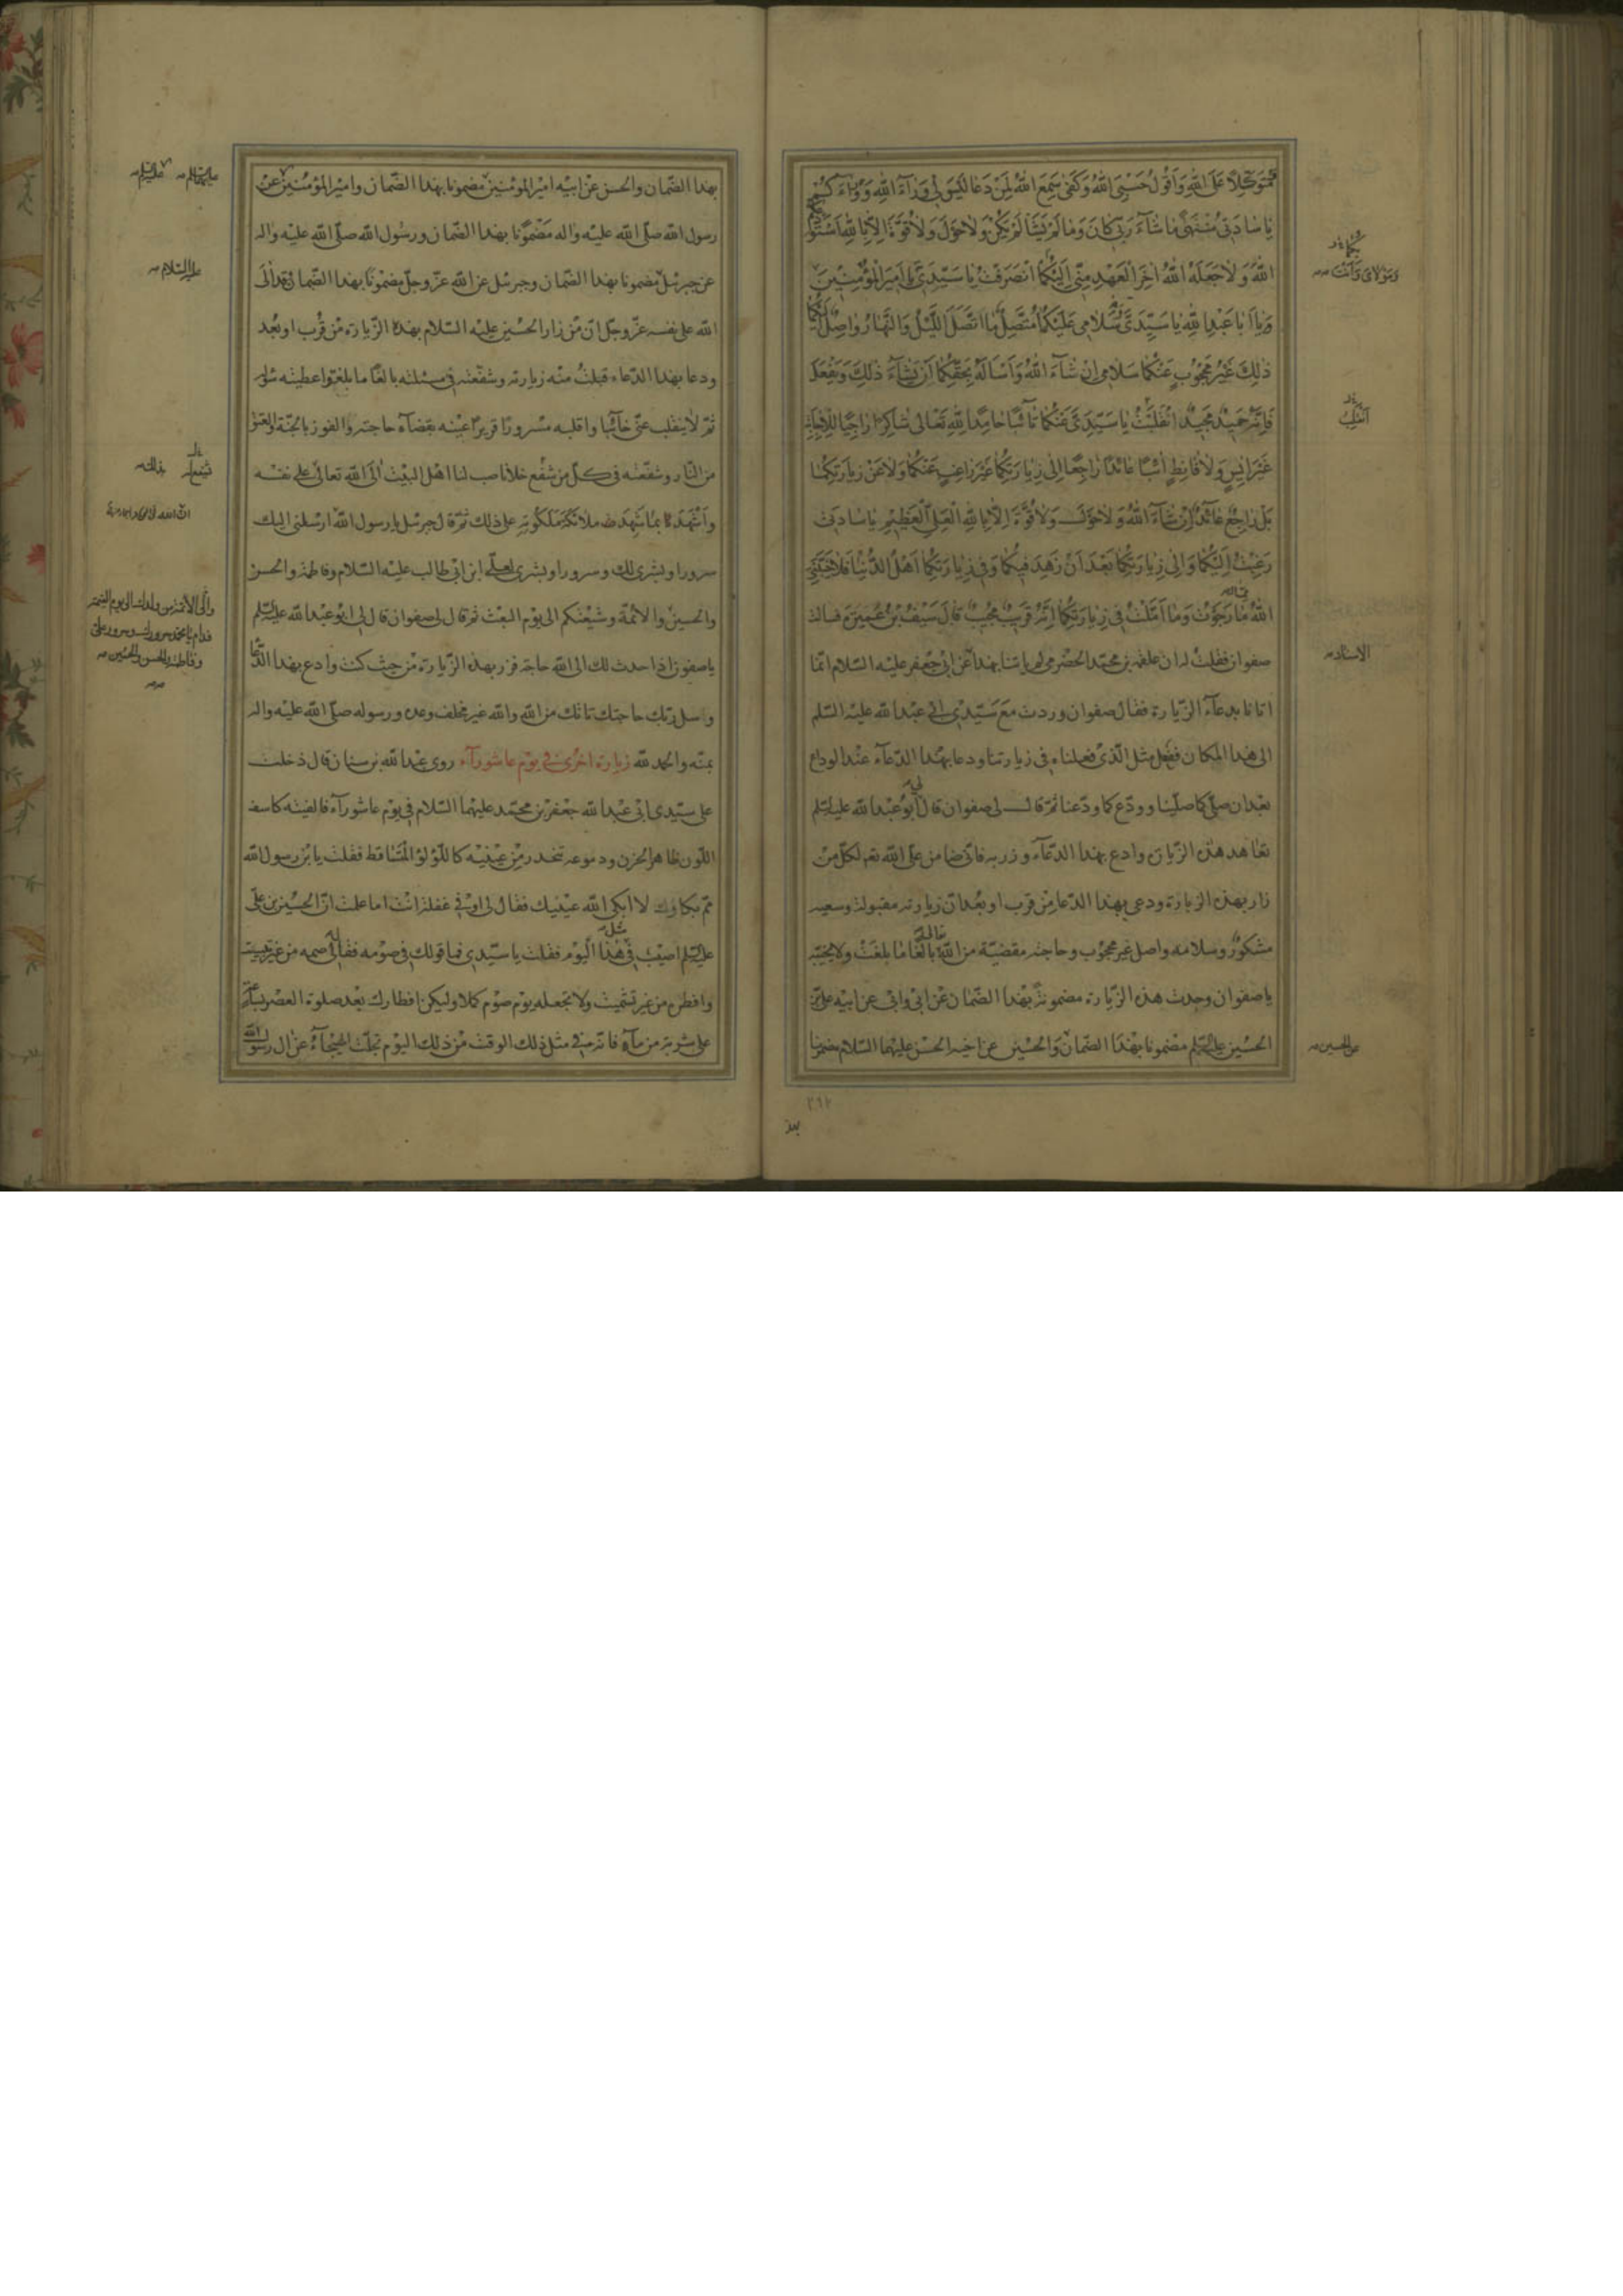 متوكلا على الله واقول حسبى الله وكفى سمع الله لمن دعا ليس لى وراء الله ووراءكم
يا سادتى منتهى ما شاء ربى كان وما لم يشا لم يكن ولا حول ولا قوة الا بالله استودعكما
الله ولا جعله الله اخر العهد منى اليكما انصرفت يا سيدى يا امير المؤمنين
ويا ابا عبد الله يا سيدى سلامى عليكما متصل ما اتصل الليل والنهار واصل اليكما
ذلك غير محجوب عنكما سلامى ان شاء الله واساله بحقكما ان يشاء ذلك ويفعل
فانه حميد مجيد انقلبت يا سيدى عنكما تائبا حامدا لله تعالى شاكرا راجيا للاجابة
غير ايس ولا قانط ائبا عائدا راجعا الى زيارتكما غير راغب عنكما ولا عن زيارتكما
بل راجع عائد ان شاء الله ولا حول ولا قوة الا بالله العلى العظيم يا سادتى
رغبت اليكما والى زيارتكما بعد ان زهد فيكما وفى زيارتكما اهل الدنيا فلا خيبنى
الله ما رجوت وما املت فى زيارتكما انه قريب مجيب قال سيف بن عميرة فسالت
صفوان فقلت له ان علقمة بن محمد الحضرمى لم ياتنا بهذا عن ابى جعفر عليه السلام انما
اتانا بدعاء الزيارة فقال صفوان وردت مع سيدى ابى عبد الله عليه السلم
الى هذا المكان ففعل مثل الذى فعلناه فى زيارتنا ودعا بهذا الدعاء عند الوداع
بعد ان صلى كما صلينا وودع كما ودعنا ثم قال لى صفوان قال لى ابو عبد الله عليه السلم
تعاهد هذه الزيارة وادع بهذا الدعاء وزر به فانى ضامن على الله تعم لكل من
زار بهذه الزيارة ودعى بهذا الدعا من قرب او بعد ان زيارته مقبولة وسعيه
مشكور وسلامه واصل غير محجوب وحاجته مقضية من الله بالغا ما بلغت ولا يخيبه
يا صفوان وجدت هذه الزيارة مضمونة بهذا الضمان عن ابى وابى عن ابيه على بن
الحسين عليه السلم مضمونا بهذا الضمان والحسين عن اخيه الحسن عليهما السلام مضمونا
ومولاى وانت
انقلب
الاسناد
عن الحسين
٢٦٢
بهذا الضمان والحسن عن ابيه امير المؤمنين مضمونا بهذا الضمان وامير المؤمنين عن
رسول الله صلى الله عليه واله مضمونا بهذا الضمان ورسول الله صلى الله عليه واله
عن جبرئيل مضمونا بهذا الضمان وجبرئيل عن الله عز وجل مضمونا بهذا الضمان قد الى
الله على نفسه عز وجل ان من زار الحسين عليه السلام بهذه الزيارة من قرب او بعد
ودعا بهذا الدعاء قبلت منه زيارته وشفعته فى مسئلته بالغا ما بلغ واعطيته سؤله
ثم لا ينقلب عنى خائبا واقلبه مسرورا قريرا عينه بقضاء حاجته والفوز بالجنة والعتق
من النار وشفعته فى كل من شفع خلا ناصب لنا اهل البيت الى الله تعالى على نفسه
واشهدنا بما شهدت ملائكة ملكوته على ذلك ثم قال جبرئيل يا رسول الله ارسلنى اليك
سرورا وبشرى لك وسرورا وبشرى لعلى ابن ابى طالب عليه السلام وفاطمة والحسن
والحسين والائمة وشيعتكم الى يوم البعث ثم قال لى صفوان قال لى ابو عبد الله عليه السلم
يا صفون اذا حدث لك الى الله حاجة فزر بهذه الزيارة من حيث كنت وادع بهذا الدعا
وسل ربك حاجتك تاتك من الله والله غير مخلف وعده ورسوله صلى الله عليه واله
بمنه والحمد لله زيارة اخرى فى يوم عاشوراء روى عبد الله بن سنان قال دخلت
على سيدى ابى عبد الله جعفر بن محمد عليهما السلام فى يوم عاشوراء فالفيته كاسف
اللون ظاهر الحزن ودموعه تنحدر من عينيه كاللؤلؤ المتساقط فقلت يا بن رسول الله
مم بكاؤك لا ابكى الله عينيك فقال لى او فى غفلة انت اما علمت ان الحسين بن على
عليه السلم اصيب فى مثل هذا اليوم فقلت يا سيدى فما قولك فى صومه فقال لى صمه من غير تبييت
وافطره من غير تشميت ولا تجعله يوم صوم كملا وليكن افطارك بعد صلوة العصر بساعة
على شربة من ماء فانه فى مثل ذلك الوقت من ذلك اليوم تجلت الهيجاء عن ال رسول الله
عليه السلام
والى الائمة من ولدك الى يوم القيمة
فدام يا محمد سرورك وسرور على
وفاطمة والحسن والحسين